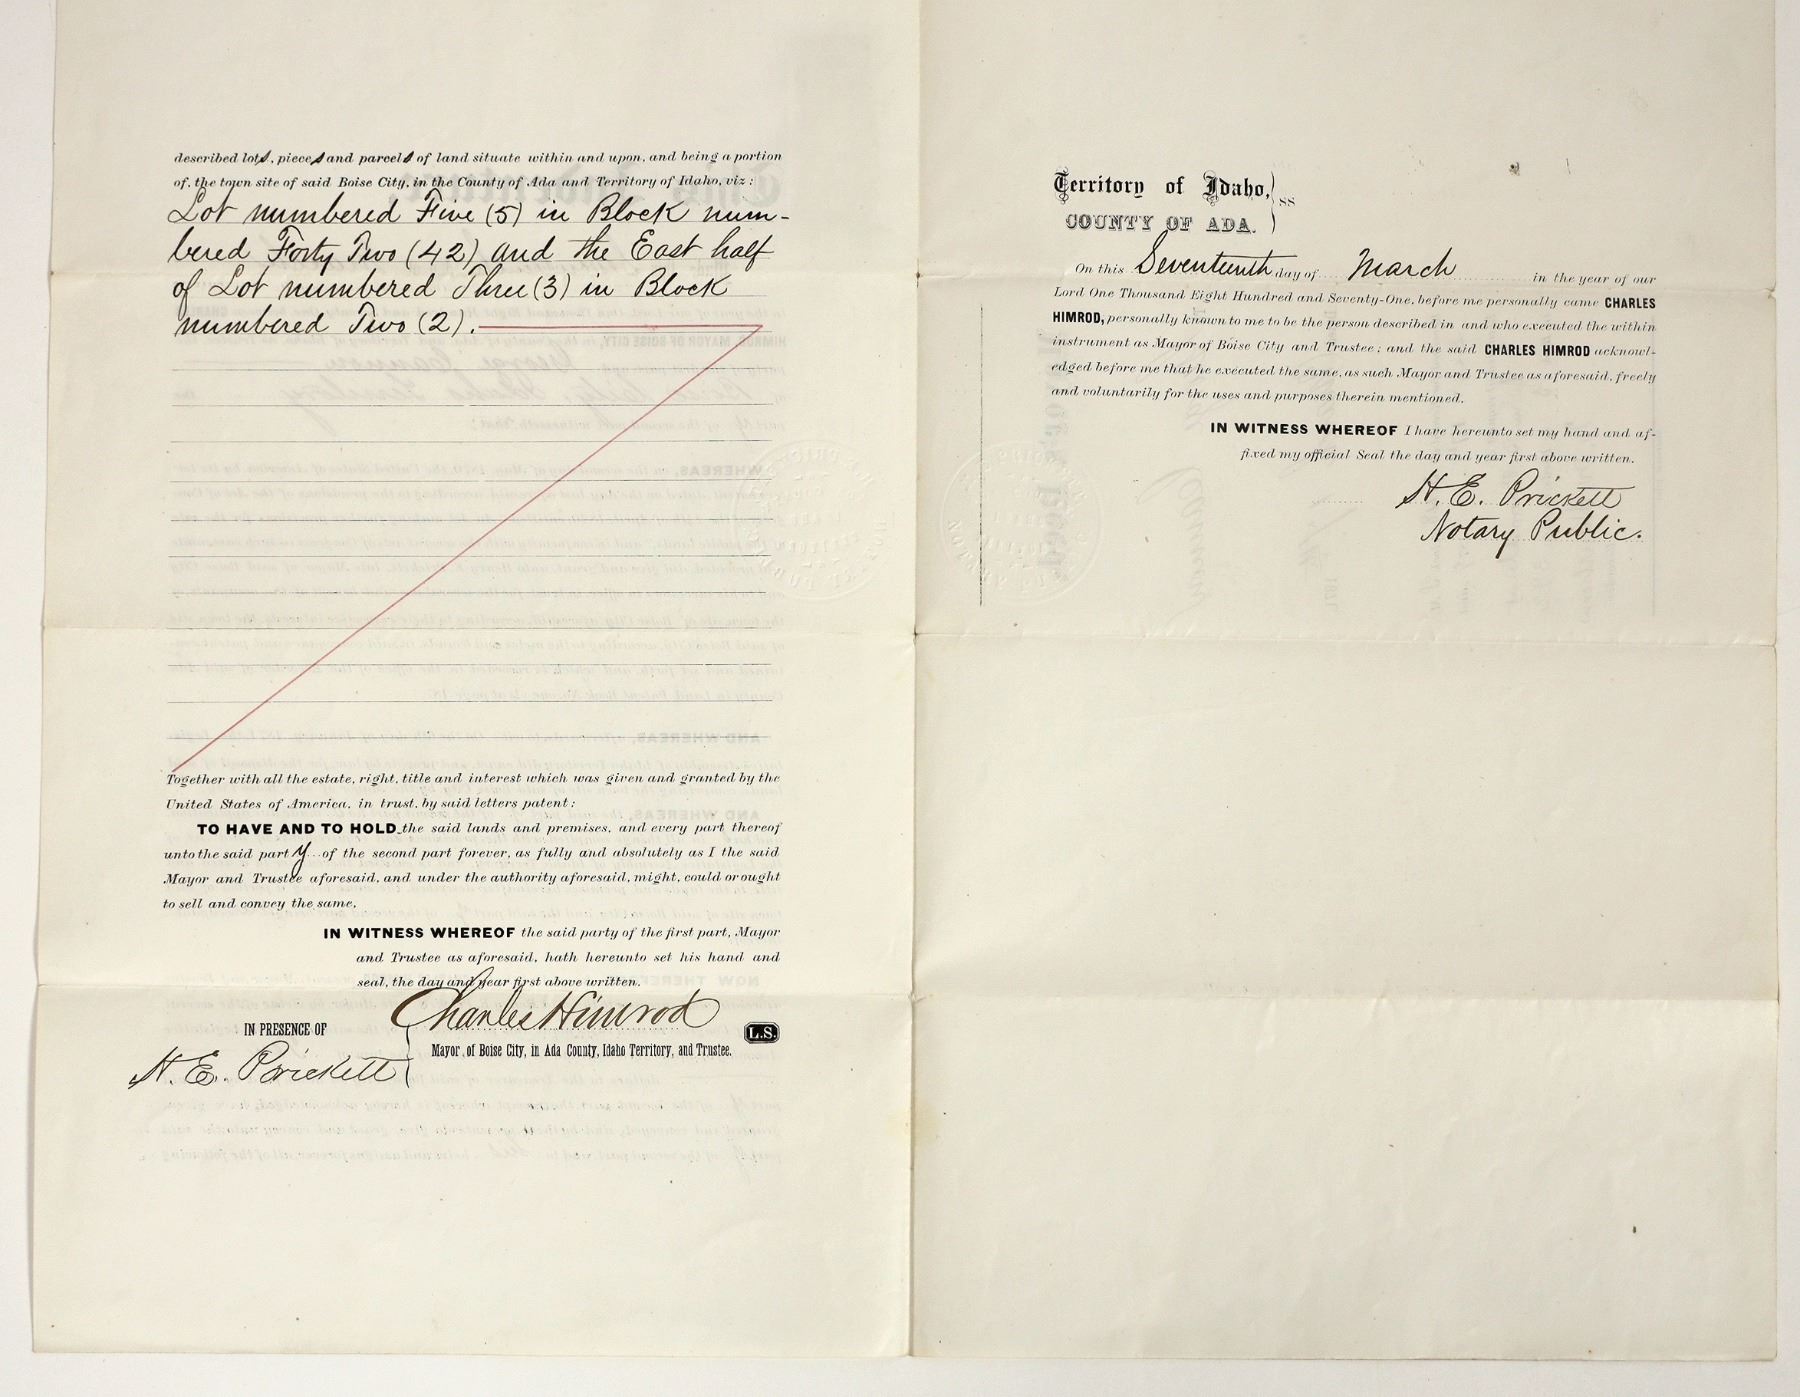 described lots, pieces and parcels of land situate within and upon, and being a portion
of, the town site of said Boise City, in the County of Ada and Territory of Idaho, viz:
Lot numbered Five (5) in Block num-
bered Forty Two (42) and the East half
of Lot numbered Three (3) in Block
numbered Two (2).
Together with all the estate, right, title and interest which was given and granted by the
United States of America, in trust, by said letters patent:
TO HAVE AND TO HOLD the said lands and premises, and every part thereof
unto the said party of the second part forever, as fully and absolutely as I the said
Mayor and Trustee aforesaid, and under the authority aforesaid, might, could or ought
to sell and convey the same,
IN WITNESS WHEREOF the said party of the first part, Mayor
and Trustee as aforesaid, hath hereunto set his hand and
seal, the day and year first above written.
Charles Himrod
L.S.
IN PRESENCE OF
Mayor, of Boise City, in Ada County, Idaho Territory, and Trustee.
H. E. Prickett
Territory of Idaho, ss
COUNTY OF ADA.
On this Seventeenth day of March in the year of our
Lord One Thousand Eight Hundred and Seventy-One, before me personally came CHARLES
HIMROD, personally known to me to be the person described in and who executed the within
instrument as Mayor of Boise City and Trustee; and the said CHARLES HIMROD acknowl-
edged before me that he executed the same, as such Mayor and Trustee as aforesaid, freely
and voluntarily for the uses and purposes therein mentioned.
IN WITNESS WHEREOF I have hereunto set my hand and af-
fixed my official Seal the day and year first above written.
H. E. Prickett
Notary Public.